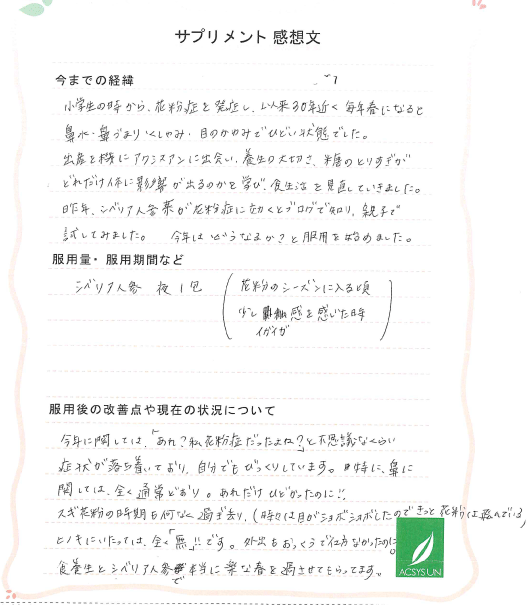 サプリメント 感想文
今までの経緯
小学生の時から、花粉症を発症し、以来30年近く毎年春になると
鼻水・鼻づまり・くしゃみ・目のかゆみでひどい状態でした。
出産を機にアクシスアンに出会い、養生の大切さ、糖のとりすぎが
どれだけ体に影響が出るのかを学び、食生活を見直していきました。
昨年、シベリア人参茶が花粉症に効くとブログで知り、親子で
試してみました。 今年はどうなるか?と服用を始めました。
服用量・服用期間など
シベリア人参 夜1包
花粉のシーズンに入る頃
少し 感を感じた時
イガイガ
服用後の改善点や現在の状況について
今年に関しては、「あれ?私花粉症だったよね?」と不思議なくらい
症状が落ち着いており、自分でもびっくりしています。特に、鼻に
関しては、全く通常どおり。あれだけひどかったのに!!
スギ花粉の時期も何なく過ぎ去り、(時々は目がショボショボしたのできっと花粉は飛んでいる)
ヒノキにいたっては、全く「無」!!です。外出もおっくうで仕方なかったのに。
食養生とシベリア人参で本当に楽な春を過させてもらってます。
ACSYSUN